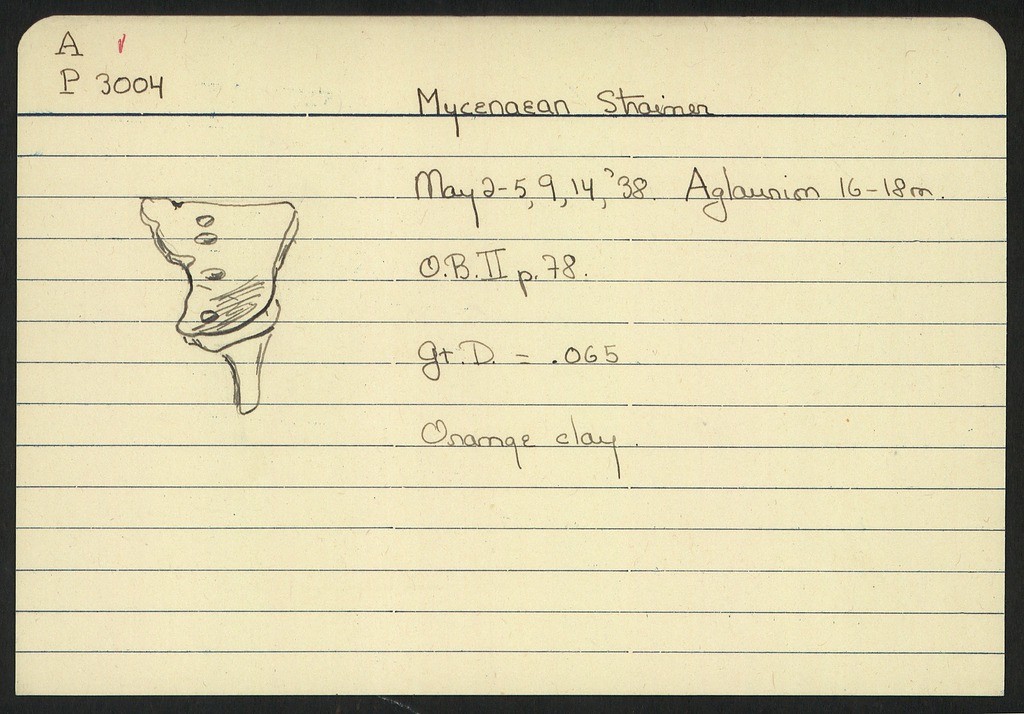 A
P 3004
Mycenaean Strainer
May 2-5, 9, 14, '38. Aglaurion 16-18m.
O.B. II p. 78.
Gt. D. = .065
Orange clay.